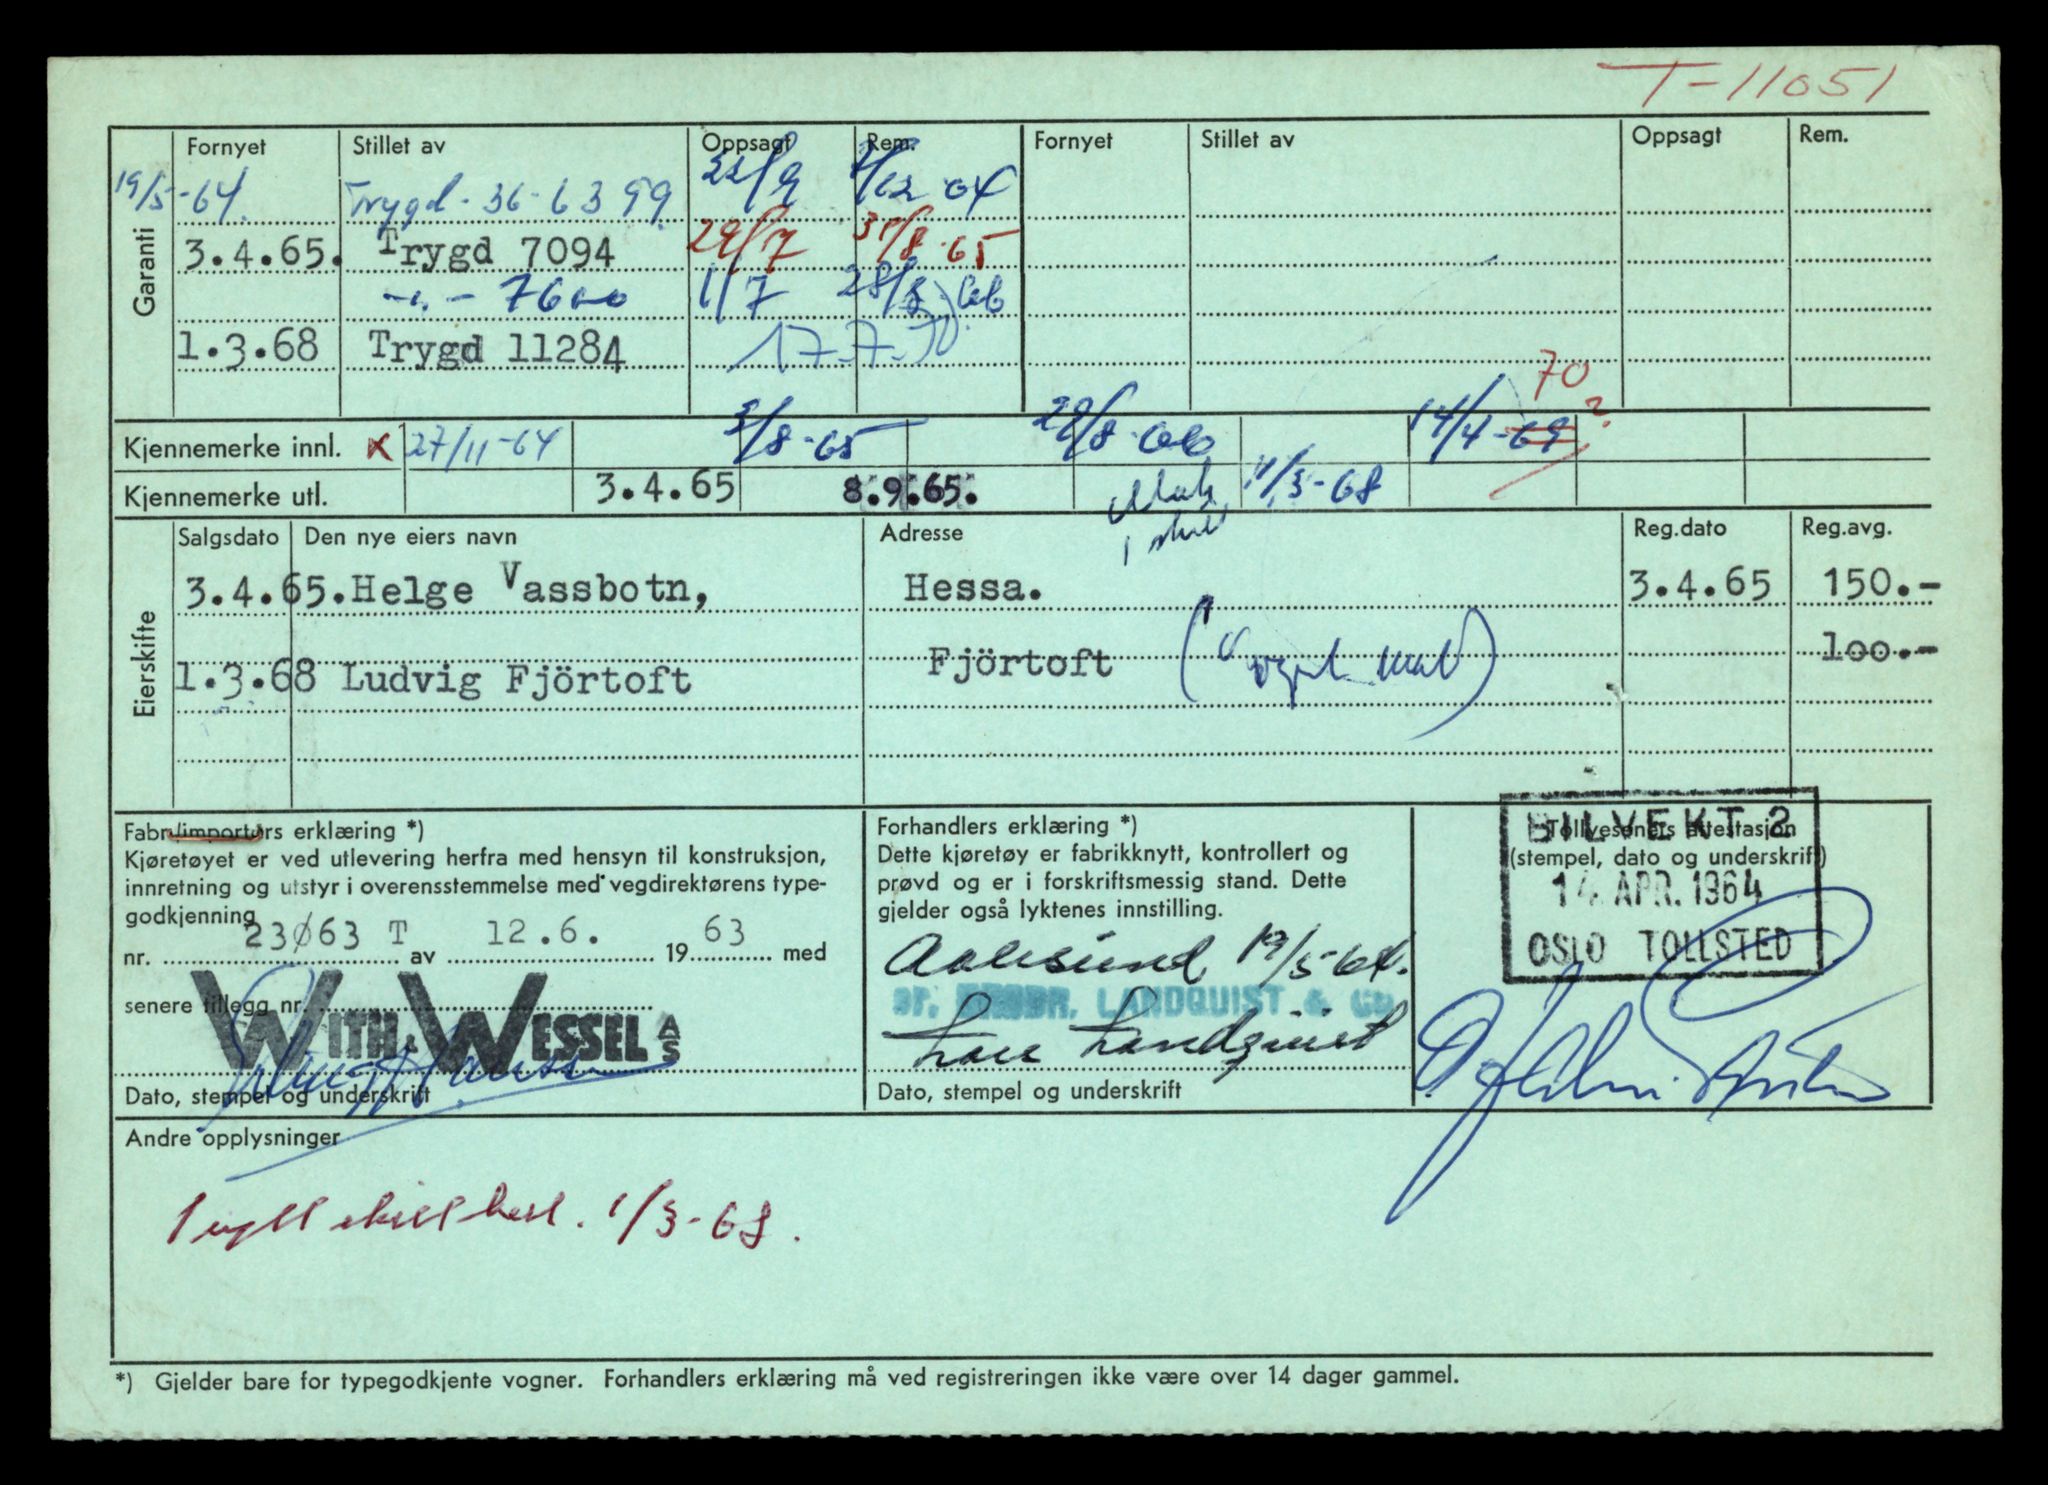 T-11051
Fornyet Stillet av Oppsagt Rem. Fornyet Stillet av Oppsagt Rem.
Garanti
19/5-64. Trygd. 36-6399. 22/9
3.4.65. Trygd 7094 29/7 31/8-65
-"- 7600 1/7 28/8 66
1.3.68 Trygd 11284 17-7-70
Kjennemerke innl. x 27/11-64 3/8-65 29/8-66 14/4-69 70 ?
Kjennemerke utl. 3.4.65 8.9.65. 1/3-68
Eierskifte
Salgsdato Den nye eiers navn Adresse Reg.dato Reg.avg.
3.4.65. Helge Vassbotn, Hessa. 3.4.65 150.-
1.3.68 Ludvig Fjörtoft Fjörtoft 100.-
Fabr./importørs erklæring *)
Kjøretøyet er ved utlevering herfra med hensyn til konstruksjon,
innretning og utstyr i overensstemmelse med vegdirektørens type-
godkjenning
nr. 23Ø63 T av 12.6. 19 63 med
senere tillegg nr.
WITH & WESSEL A/S
Dato, stempel og underskrift
Forhandlers erklæring *)
Dette kjøretøy er fabrikknytt, kontrollert og
prøvd og er i forskriftsmessig stand. Dette
gjelder også lyktenes innstilling.
Aalesund, 19/5-64.
LANDQUIST & CO.
Landquist
Dato, stempel og underskrift
BILVEKT 2
Tollvesenets attestasjon
(stempel, dato og underskrift)
14 APR. 1964
OSLO TOLLSTED
Andre opplysninger
1/3-68.
*) Gjelder bare for typegodkjente vogner. Forhandlers erklæring må ved registreringen ikke være over 14 dager gammel.